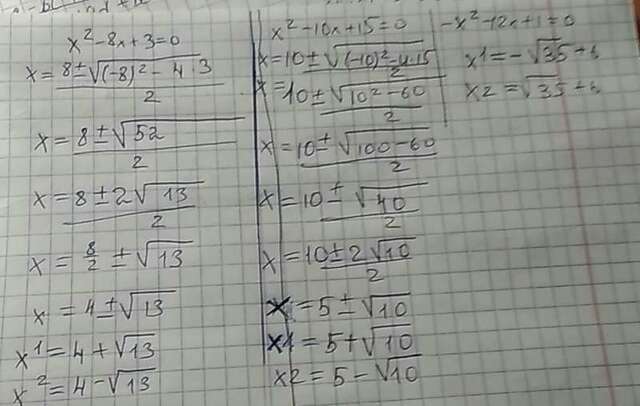 x²-8x+3=0
x = (8±√((-8)² - 4·3))/2
x = (8±√52)/2
x = (8±2√13)/2
x = 8/2 ± √13
x = 4±√13
x1 = 4+√13
x2 = 4-√13
x²-10x+15=0
x = (10±√((-10)²-4·15))/2
x = (10±√(10²-60))/2
x = (10±√(100-60))/2
x = (10±√40)/2
x = (10±2√10)/2
x = 5±√10
x1 = 5+√10
x2 = 5-√10
-x²-12x+1=0
x1 = -√35+
x2 = √35+